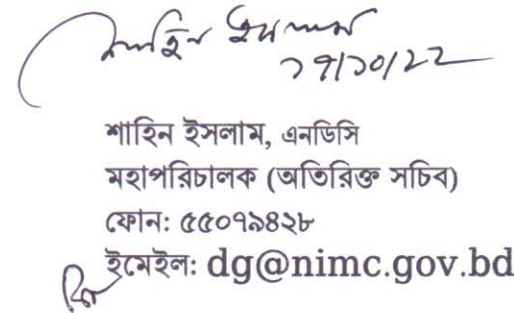 শাহিন ইসলাম
১৭/১০/২২
শাহিন ইসলাম, এনডিসি
মহাপরিচালক (অতিরিক্ত সচিব)
ফোন: ৫৫০৭৯৪২৮
ইমেইল: dg@nimc.gov.bd